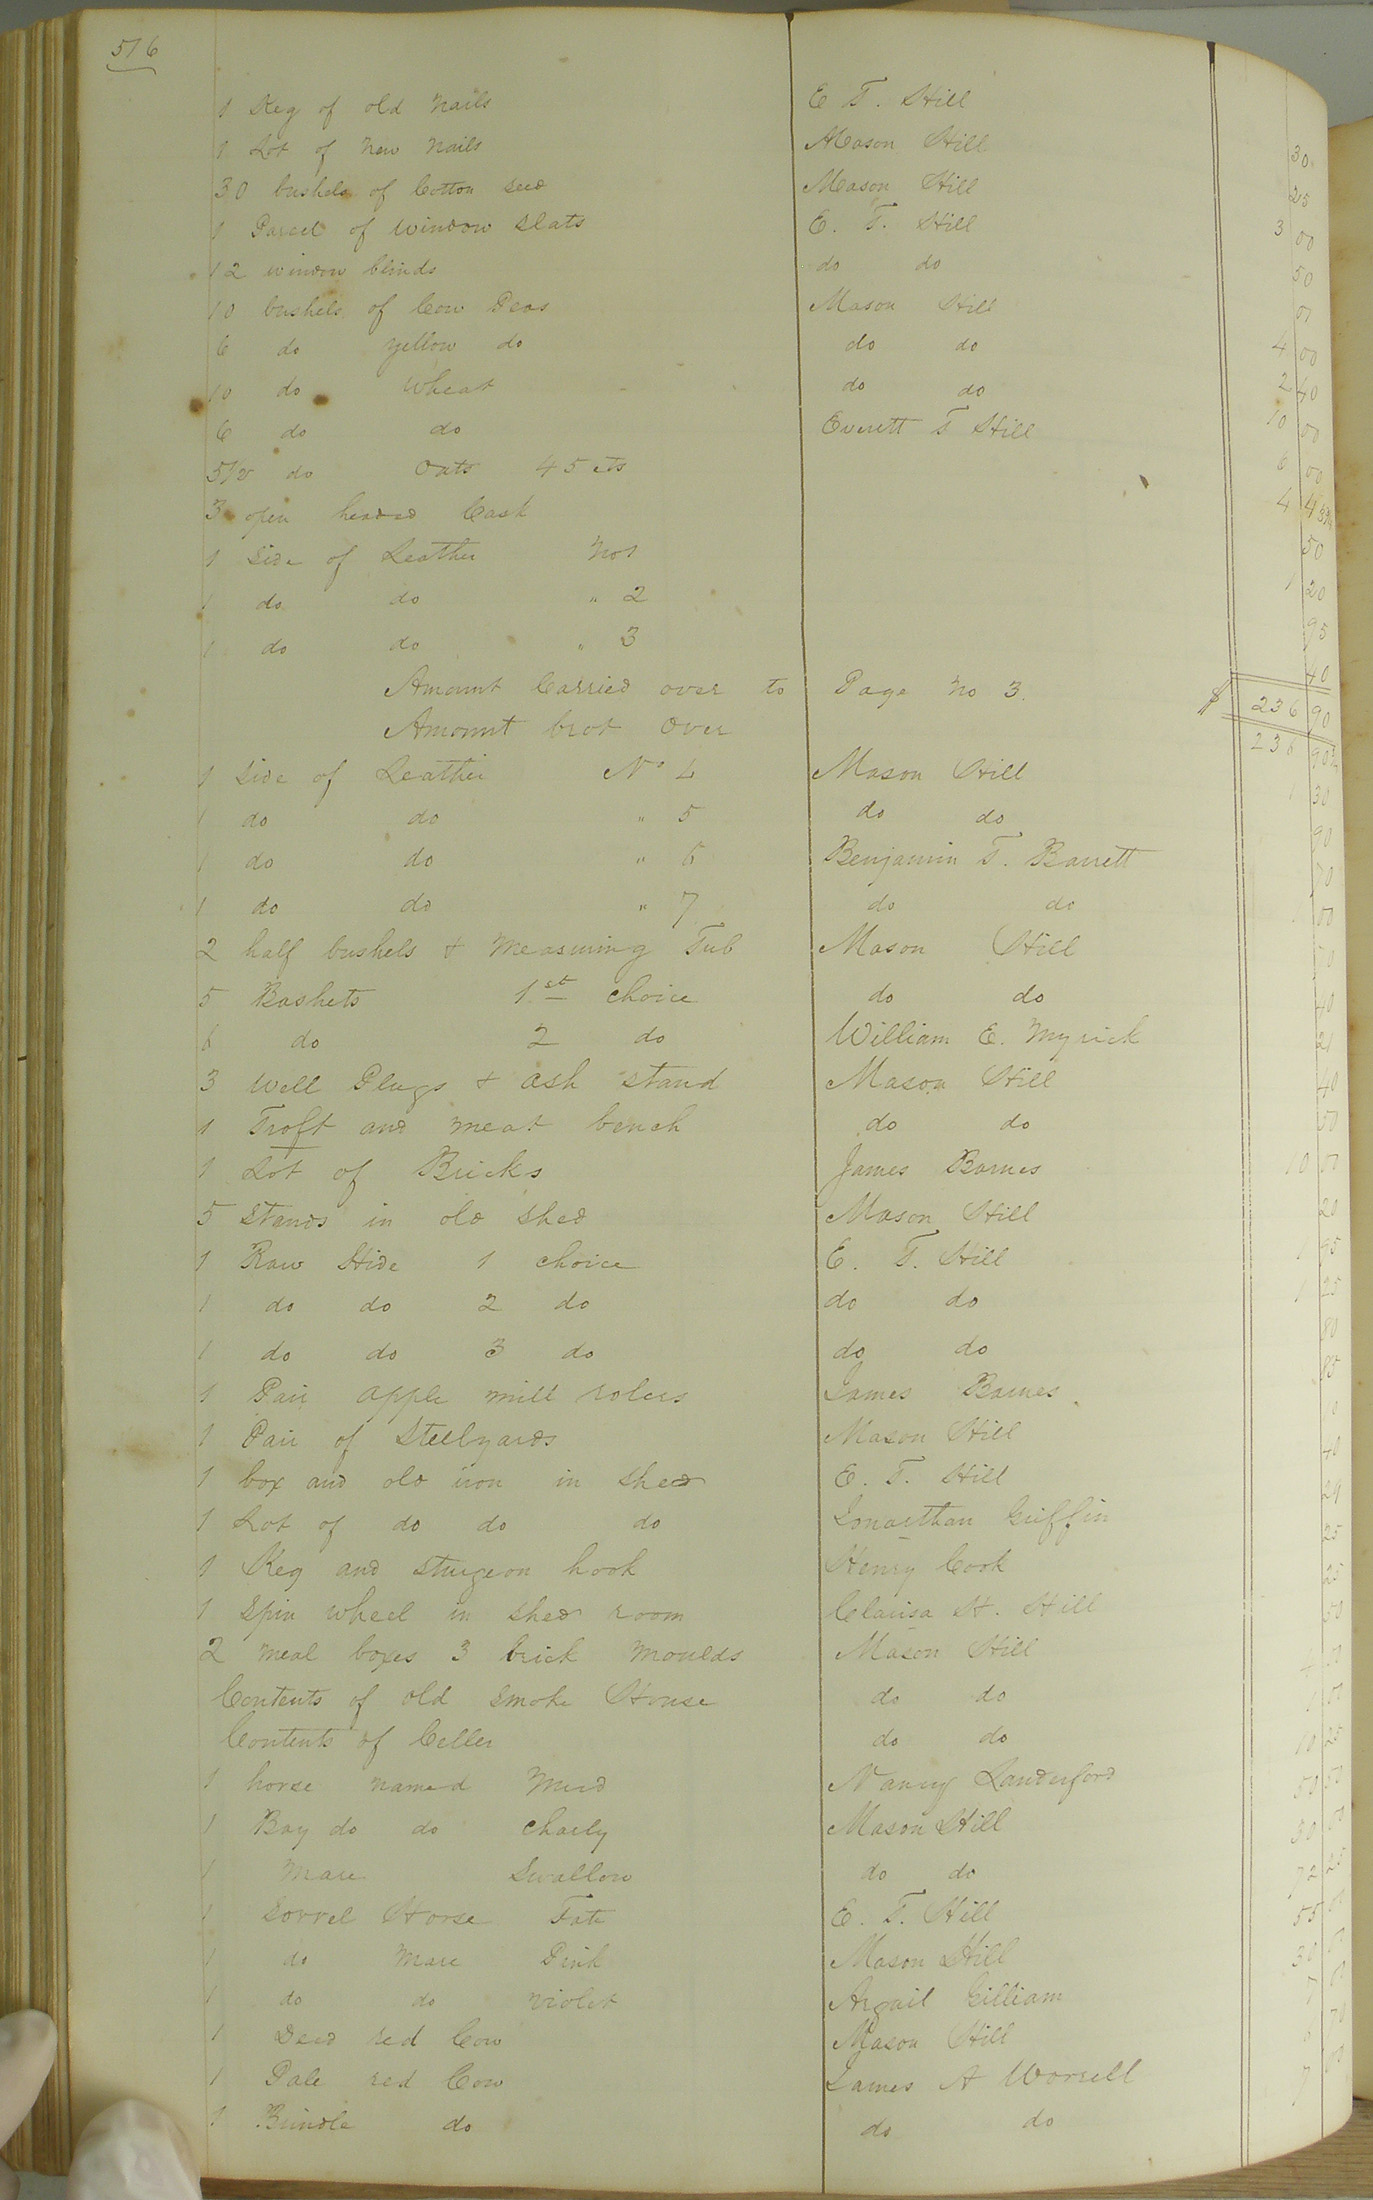 516
1 Keg of old nails E T. Hill 30
1 Lot of New Nails Mason Hill 25
30 bushels of Cotton seed Mason Hill 3 00
1 Parcel of window slats E. T. Hill 50
12 window blinds do do
10 bushels of Cow Peas Mason Hill 4 00
6 do yellow do do do 2 40
10 do Wheat do do 10 00
6 do do Everett T Hill 6 00
5 1/2 do Oats 45 cts 4
3 open headed Cask 50
1 Side of Leather No 1 1 20
1 do do " 2 95
1 do do " 3 40
Amount Carried over to Page No 3. $ 236 90
Amount brot over 236 90
1 Side of Leather No 4 Mason Hill 1 30
1 do do " 5 do do 90
1 do do " 6 Benjamin T. Barrett 70
1 do do " 7 do do 00
2 half bushels & measuring Tub Mason Hill
5 Baskets 1st choice do do 40
6 do 2 do William E. Myrick 21
3 Well Plugs & ash stand Mason Hill 40
1 Troft and meat bench do do 50
1 Lot of Bricks James Barnes 10
5 Stands in old shed Mason Hill 20
1 Raw Hide 1 choice E. T. Hill 1 95
1 do do 2 do do do 1 25
1 do do 3 do do do 80
1 Pair apple mill rolers James Barnes 85
1 Pair of Steelyards Mason Hill
1 box and old iron in shed E. T. Hill 40
1 Lot of do do do Jonaethan Griffin 29
1 Keg and sturgeon hook Henry Cook 25
1 Spin wheel in shed room Clarisa H. Hill 25
2 meal boxes 3 brick moulds Mason Hill 50
Contents of old smoke House do do
Contents of Celler do do 00
1 horse named Nancy Landerford 10 25
1 Bay do do Charly Mason Hill 50 50
1 Mare Swallow do do 30 00
1 Sorrel Horse E. T. Hill 72 25
1 do Mare Pink Mason Hill 55
1 do do violet Argail Gilliam 30
1 Deed red Cow Mason Hill 7
1 Pale red Cow James A Worrell
1 Brindle do do do 7